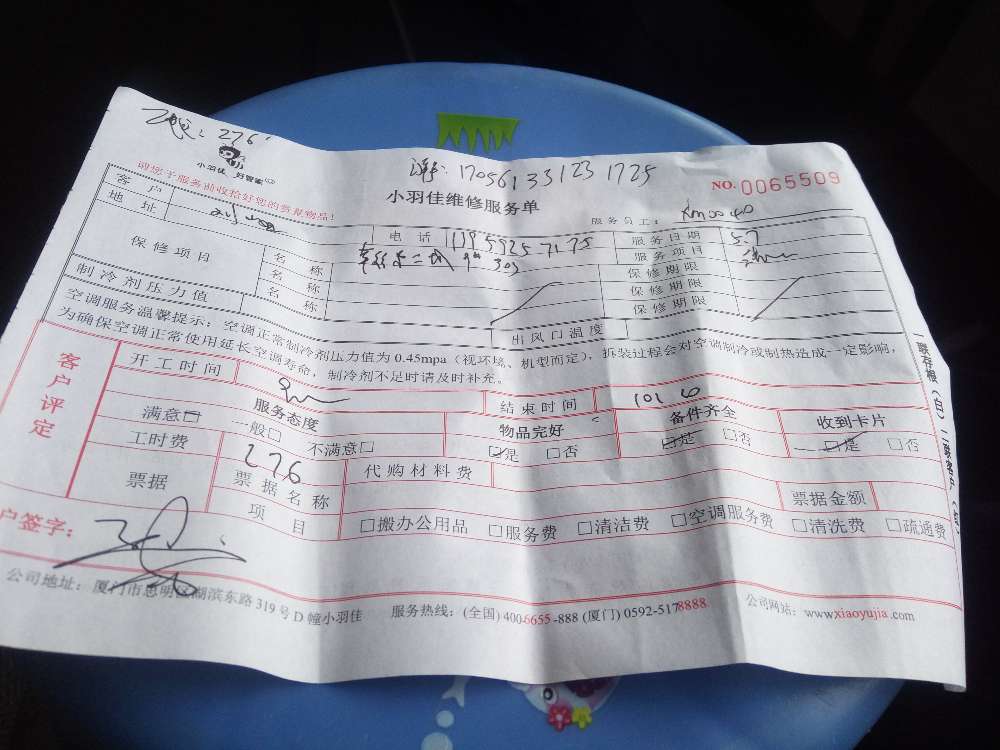 276
小羽佳 好管家
17056133123 1725
NO. 0065509
请您于服务前收拾好您的贵重物品!
小羽佳维修服务单
服务员工: Xm0040
客户
电话
服务日期 5.7
地址
服务项目
保修项目
名称
保修期限
名称
保修期限
名称
保修期限
制冷剂压力值
出风口温度
空调服务温馨提示: 空调正常制冷剂压力值为 0.45mpa (视环境、机型而定), 拆装过程会对空调制冷或制热造成一定影响,
为确保空调正常使用延长空调寿命, 制冷剂不足时请及时补充。
客户评定
开工时间
结束时间
服务态度
物品完好
备件齐全
收到卡片
满意□ 一般□ 不满意□
□是 □否
□是 □否
□是 □否
工时费 276
代购材料费
票据
票据名称
票据金额
项目
□搬办公用品 □服务费 □清洁费 □空调服务费 □清洗费 □疏通费
户签字:
公司地址: 厦门市思明区湖滨东路 319 号 D 幢小羽佳 服务热线: (全国) 400-6655-888 (厦门) 0592-5178888 公司网站: www.xiaoyujia.com
一联存根 (白) 二联客户 (红)